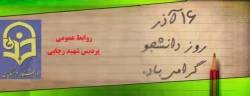 ۱۶ آذر
روز دانشجو
گرامی باد.
روابط عمومی
پردیس شهید رجایی